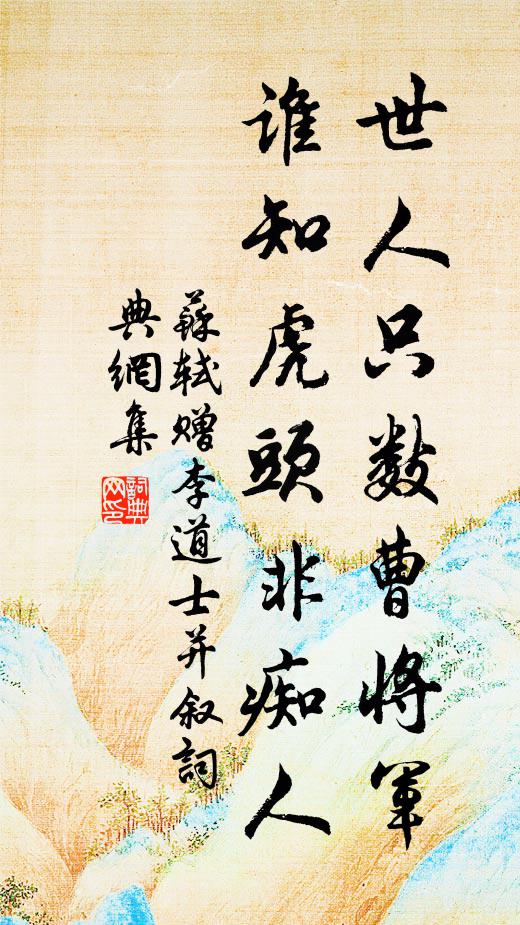 世人只數曹將軍
誰知虎頭非痴人
蘇軾贈李道士并敘詞
典網集
詞典
网印